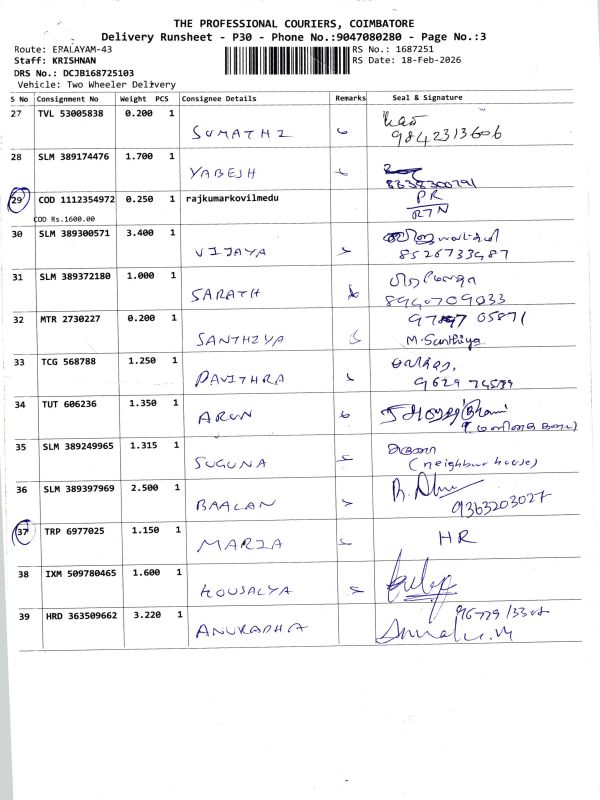 THE PROFESSIONAL COURIERS, COIMBATORE
Delivery Runsheet - P30 - Phone No.:9047080280 - Page No.:3
Route: ERALAYAM-43 RS No.: 1687251
Staff: KRISHNAN RS Date: 18-Feb-2026
DRS No.: DCJB168725103
Vehicle: Two Wheeler Delivery
S No Consignment No Weight PCS Consignee Details Remarks Seal & Signature
27 TVL 53005838 0.200 1 SUMATHI
9842313606
28 SLM 389174476 1.700 1 YABESH
8338300791
29 COD 1112354972 0.250 1 rajkumarkovilmedu PR
COD Rs.1600.00 RTN
30 SLM 389300571 3.400 1 VIJAYA
8526733487
31 SLM 389372180 1.000 1 SARATH
8940709033
32 MTR 2730227 0.200 1 SANTHIYA
05871
M.Santhiya
33 TCG 568788 1.250 1 PAVITHRA
9629
34 TUT 606236 1.350 1 ARUN
35 SLM 389249965 1.315 1 SUGUNA
(neighbur house)
36 SLM 389397969 2.500 1 BAALAN
9363203027
37 TRP 6977025 1.150 1 MARIA HR
38 IXM 509780465 1.600 1 KOUSALYA
39 HRD 363509662 3.220 1 ANURADHA